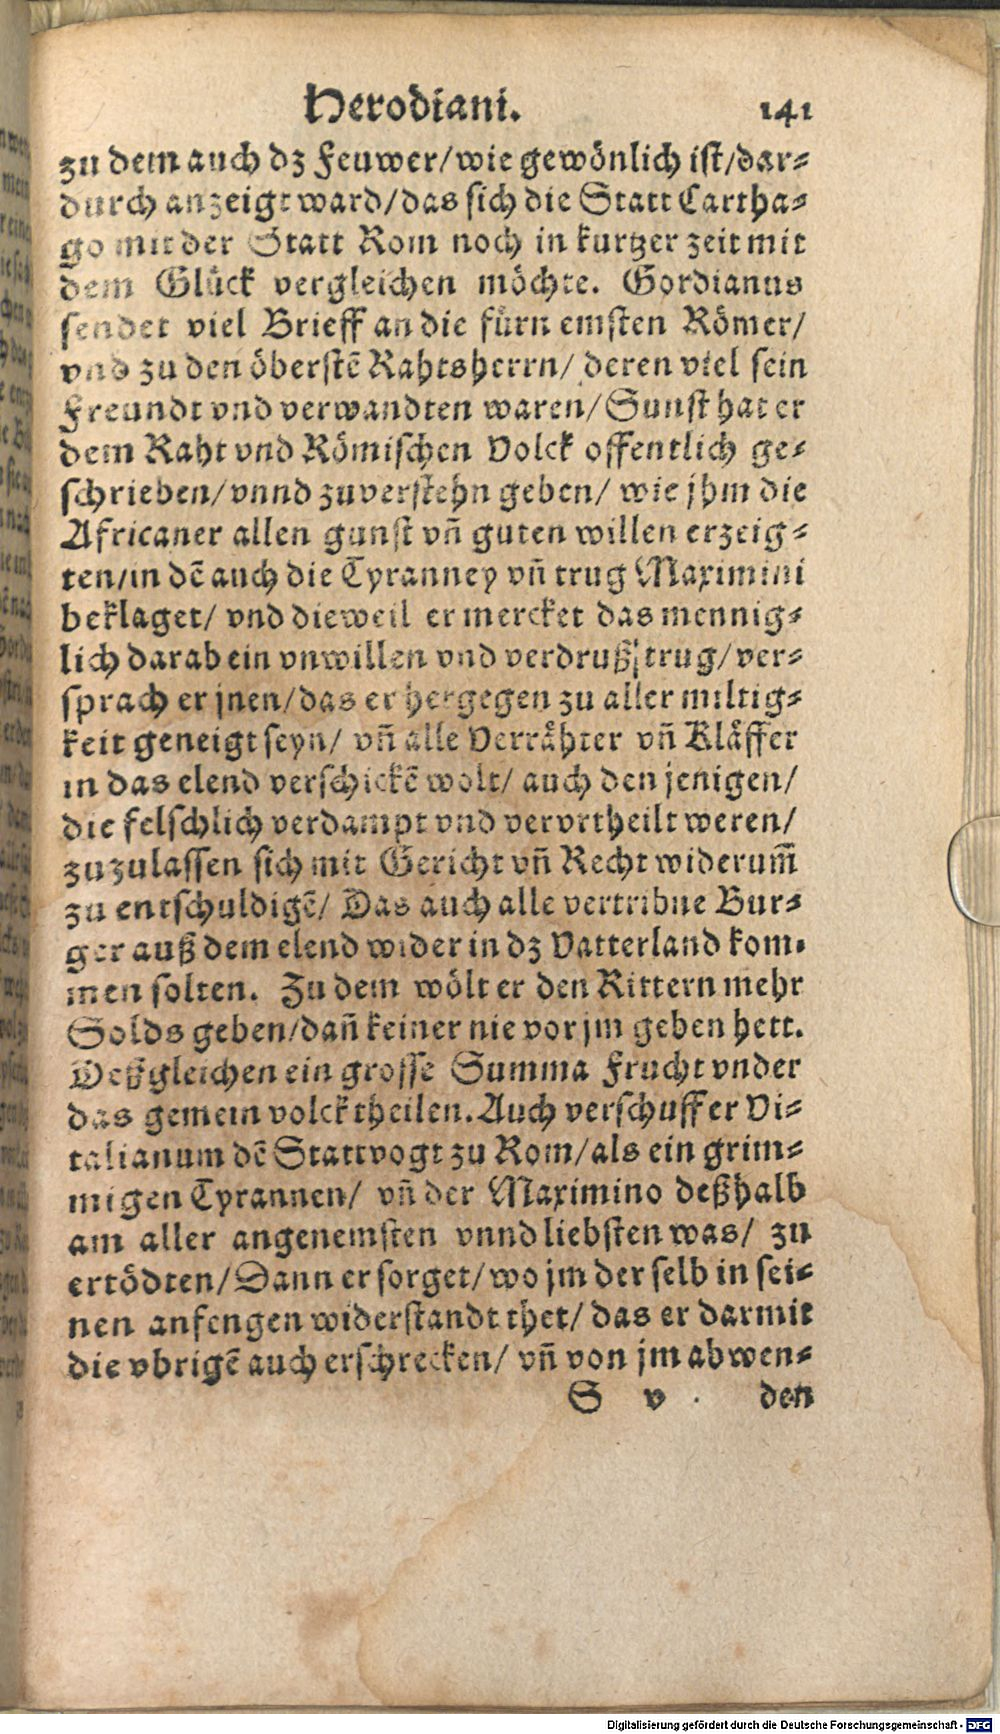 Herodiani. 141
zu dem auch dz Feuwer/wie gewönlich ist/dar-
durch anzeigt ward/das sich die Statt Cartha-
go mit der Statt Rom noch in kurtzer zeit mit
dem Glück vergleichen möchte. Gordianus
sendet viel Brieff an die fürnemsten Römer/
vnd zu den öberstẽ Rahtsherrn/ deren viel sein
Freundt vnd verwandten waren/Sunst hat er
dem Raht vnd Römischen Volck offentlich ge-
schrieben/vnnd zuverstehn geben/ wie jhm die
Africaner allen gunst vñ guten willen erzeig-
ten/in dẽ auch die Tyranney vñ trug Maximini
beklaget/ vnd dieweil er mercket das mennig-
lich darab ein vnwillen vnd verdruß trug/ver-
sprach er jnen/das er hergegen zu aller miltig-
keit geneigt seyn/ vñ alle Verrähter vñ Kläffer
in das elend verschickẽ wolt/ auch den jenigen/
die felschlich verdampt vnd vervrtheilt weren/
zuzulassen sich mit Gericht vñ Recht widerum̃
zu entschuldigẽ/ Das auch alle vertribne Bur-
ger auß dem elend wider in dz Vatterland kom-
men solten. Zu dem wölt er den Rittern mehr
Solds geben/dañ keiner nie vor jm geben hett.
Deßgleichen ein grosse Summa Frucht vnder
das gemein volck theilen. Auch verschuff er Vi-
talianum dẽ Stattvogt zu Rom/als ein grim-
migen Tyrannen/ vñ der Maximino deßhalb
am aller angenemsten vnnd liebsten was/ zu
ertödten/Dann er sorget/wo jm der selb in sei-
nen anfengen widerstandt thet/ das er darmit
die vbrigẽ auch erschrecken/ vñ von jm abwen-
S v den
Digitalisierung gefördert durch die Deutsche Forschungsgemeinschaft - DFG